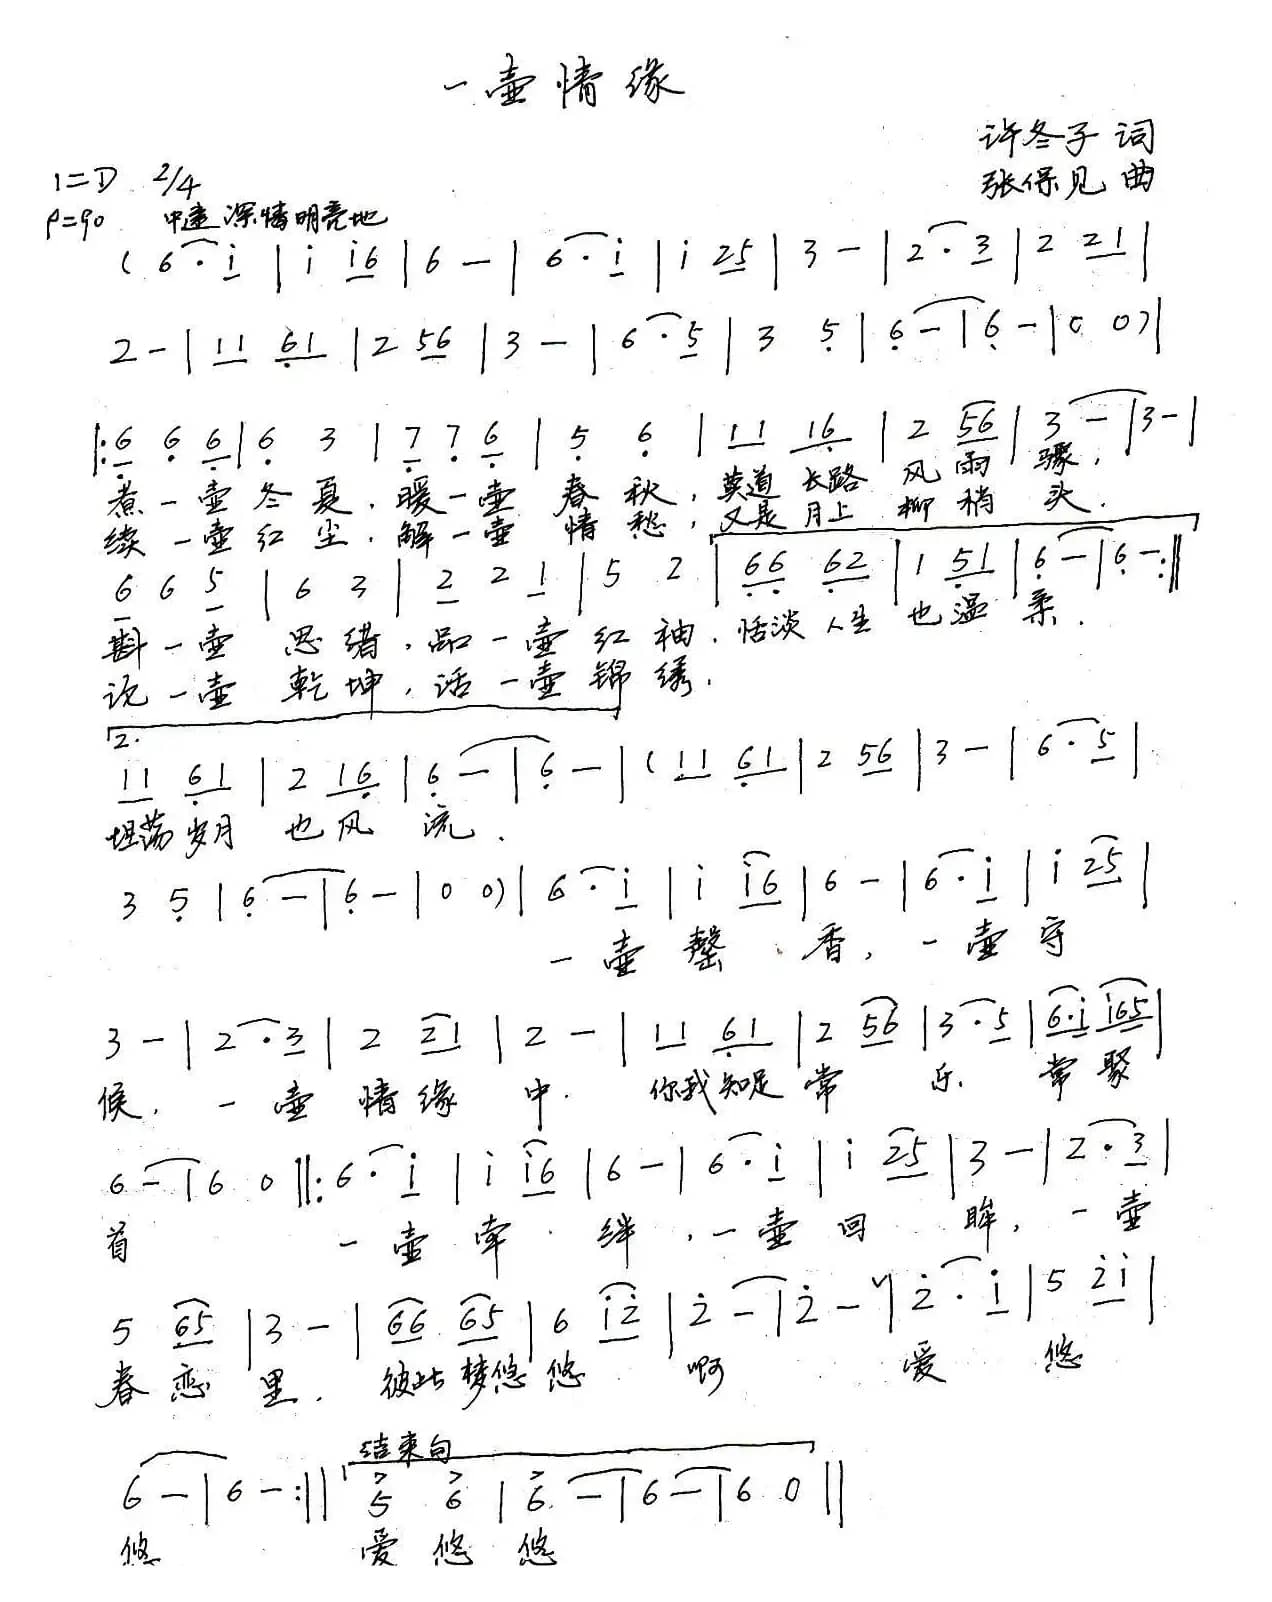 一壶情缘
许冬子 词
1=D 2/4
张保见 曲
♩=90 中速 深情明亮地
( 6· i | i i6 | 6 - | 6· i | i 25 | 3 - | 2· 3 | 2 21 |
2 - | 11 61 | 2 56 | 3 - | 6· 5 | 3 5 | 6 - | 6 - | 0 0 ) |
|: 6 6 6 | 6 3 | 7 7 6 | 5 6 | 11 16 | 2 56 | 3 - | 3 - |
煮一壶冬夏，暖一壶春秋，莫道长路风雨骤，
续一壶红尘，解一壶情愁，又是月上柳稍头．
6 6 5 | 6 3 | 2 2 1 | 5 2 | 66 62 | 1 51 | 6 - | 6 - :||
斟一壶思绪，品一壶红袖．恬淡人生也温柔．
沦一壶乾坤，话一壶锦绣．
2.
11 61 | 2 16 | 6 - | 6 - | ( 11 61 | 2 56 | 3 - | 6· 5 |
坦荡岁月也风流．
3 5 | 6 - | 6 - | 0 0 ) | 6· i | i i6 | 6 - | 6· i | i 25 |
一壶馨香，一壶守
3 - | 2· 3 | 2 21 | 2 - | 11 61 | 2 56 | 3· 5 | 6·i i65 |
候，一壶情缘中．你我知足常乐常聚
6 - | 6 0 ||: 6· i | i i6 | 6 - | 6· i | i 25 | 3 - | 2· 3 |
首 一壶牵绊，一壶回眸，一壶
5 65 | 3 - | 66 65 | 6 i2 | 2 - | 2 - | 2· i | 5 2i |
春恋里．彼此梦悠悠 啊 爱悠
结束句
6 - | 6 - :|| 5 6 | 6 - | 6 - | 6 0 ||
悠 爱悠悠